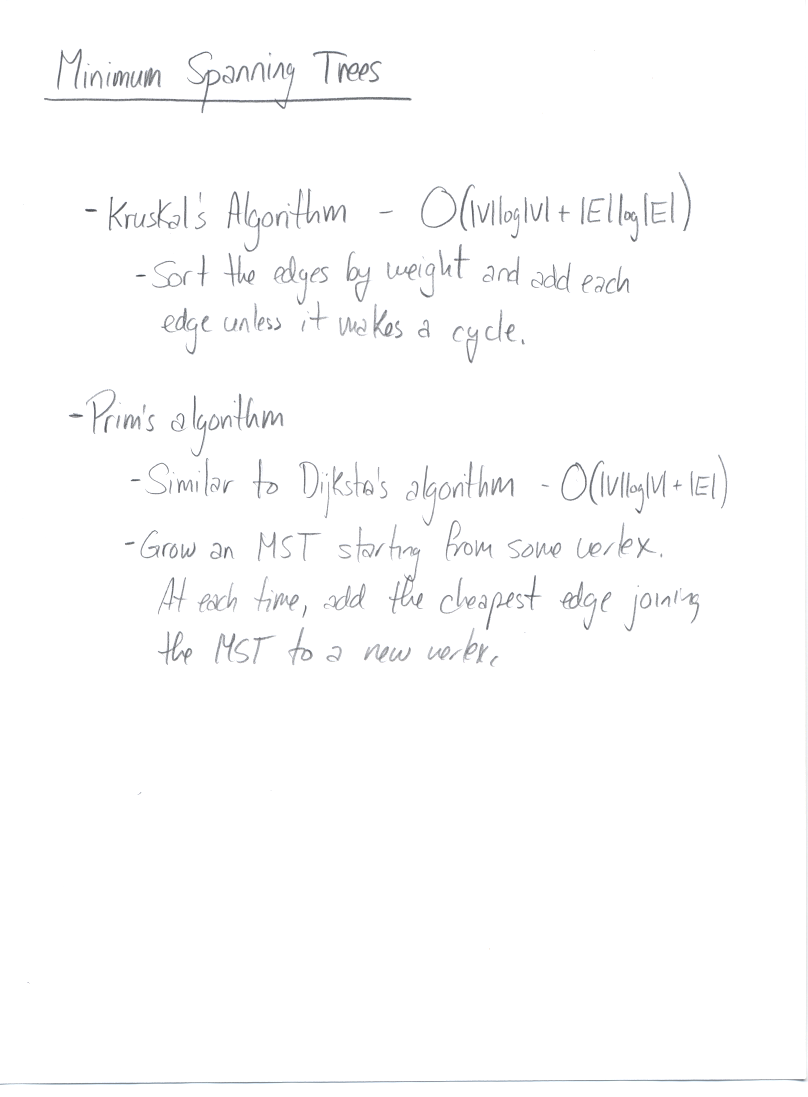 Minimum Spanning Trees
- Kruskal's Algorithm - O(|V|log|V| + |E|log|E|)
- Sort the edges by weight and add each
edge unless it makes a cycle.
- Prim's algorithm
- Similar to Dijksta's algorithm - O(|V|log|V| + |E|)
- Grow an MST starting from some vertex.
At each time, add the cheapest edge joining
the MST to a new vertex.